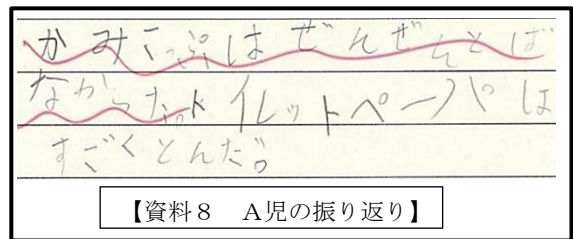 かみこっぷはぜんぜんとば
なからた。トイレットペーパーは
すごくとんだ。
【資料8 A児の振り返り】